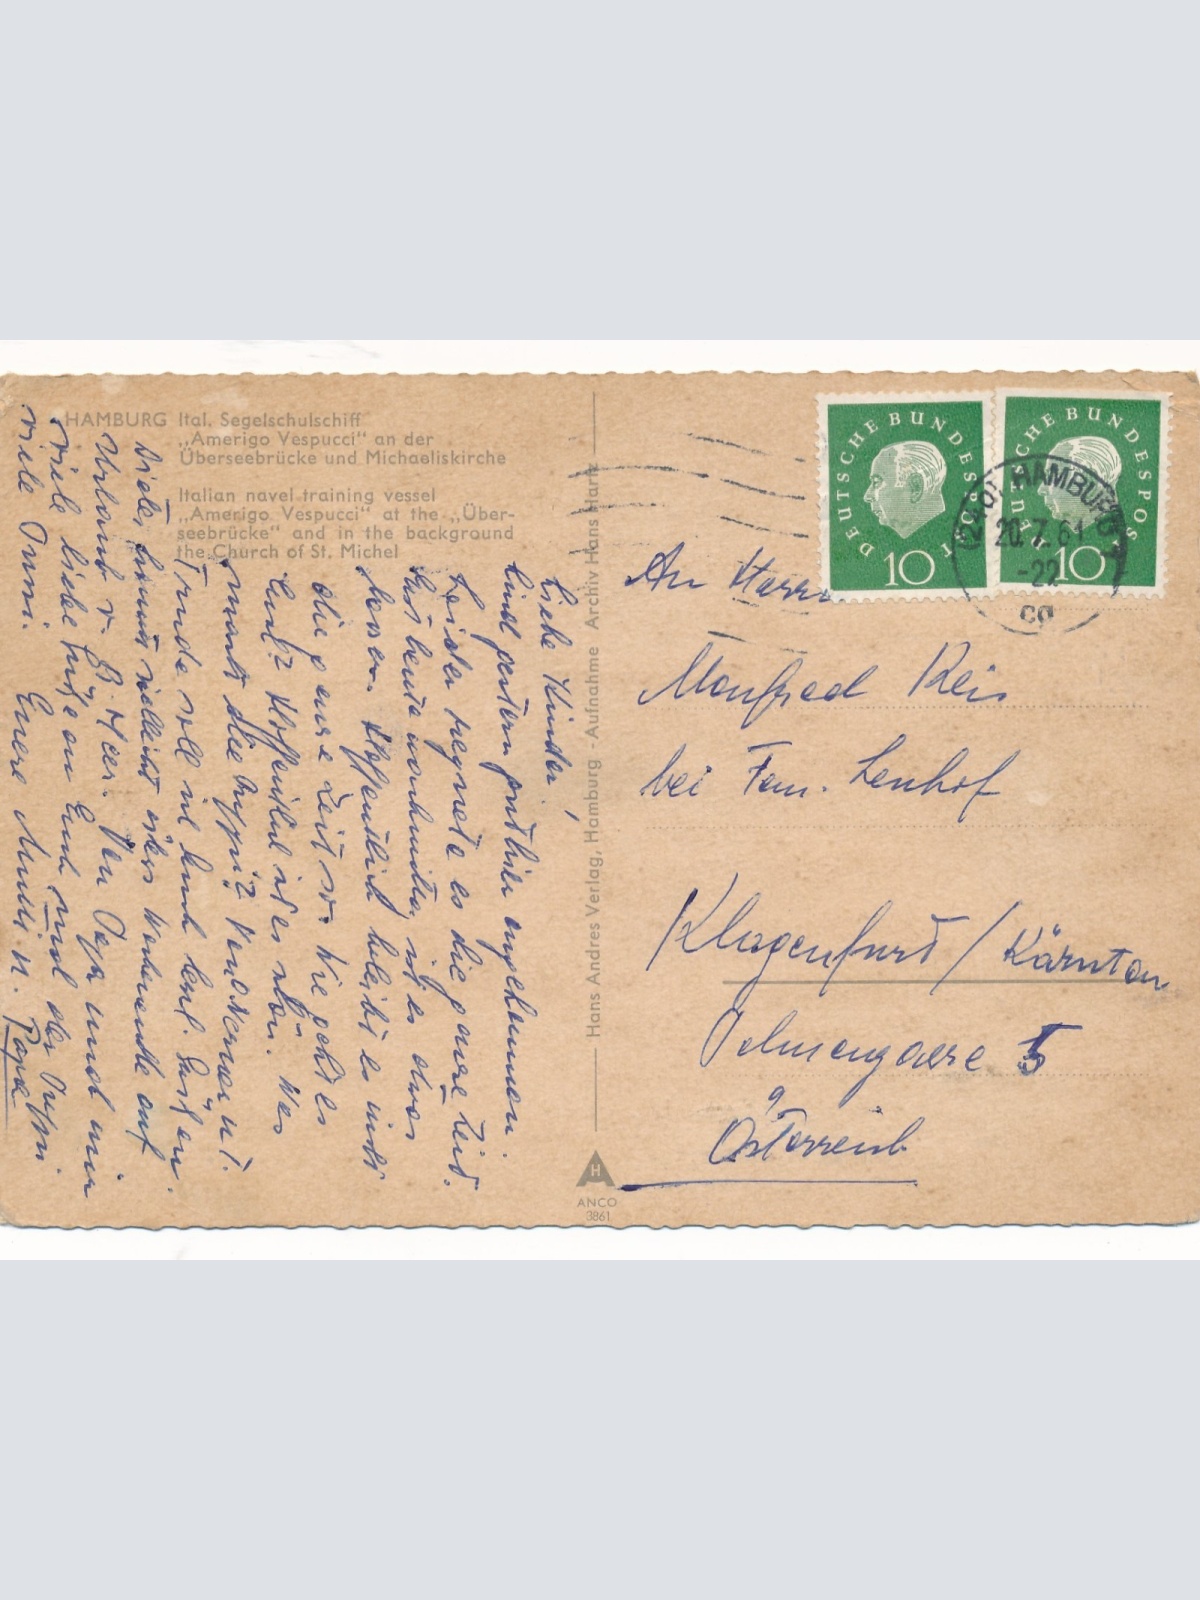 HAMBURG Ital. Segelschulschiff
„Amerigo Vespucci“ an der
Überseebrücke und Michaeliskirche
Italian navel training vessel
„Amerigo Vespucci“ at the „Über-
seebrücke“ and in the background
the Church of St. Michel
Liebe Kinder!
Sind gestern gut hier angekommen.
Leider regnete es die ganze Zeit.
Erst heute vormittag ist es etwas
besser. Hoffentlich bleibt es nicht
die ganze Zeit so. Wie geht es
Euch? Hoffentlich ist es schön. Was
macht die Puppi?
soll sich Euch
vielleicht übers Wochenende auf
Urlaub v.
viele liebe Grüße an Euch und der Puppi
viele Bussi. Eure Mutti u. Papa
Hans Andres Verlag, Hamburg - Aufnahme Archiv Hans Hartz
ANCO
3861
DEUTSCHE BUNDESPOST
10
DEUTSCHE BUNDESPOST
10
HAMBURG
20.7.61-22
An Herrn
Manfred Reis
bei Fam. Lenhof
Klagenfurt / Kärnten
5
Österreich